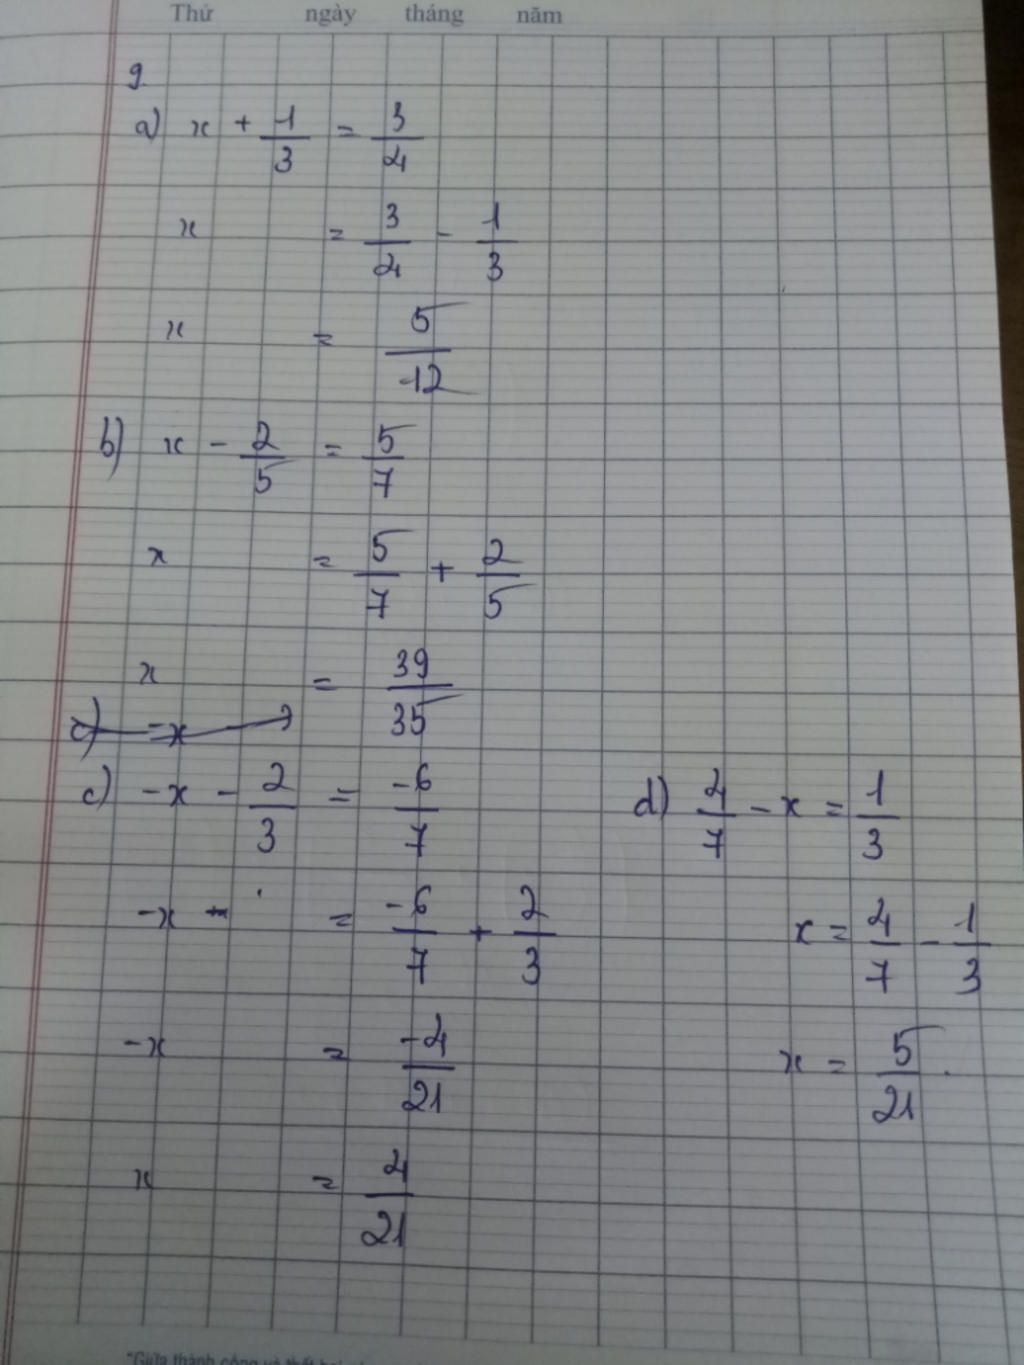 Thứ ngày tháng năm
9.
a) x + 1/3 = 3/4
x = 3/4 - 1/3
x = 5/12
b) x - 2/5 = 5/7
x = 5/7 + 2/5
x = 39/35
c) = x
c) -x - 2/3 = -6/7
-x = -6/7 + 2/3
-x = -4/21
x = 4/21
d) 4/7 - x = 1/3
x = 4/7 - 1/3
x = 5/21.
"Giữa thành công và thất bại